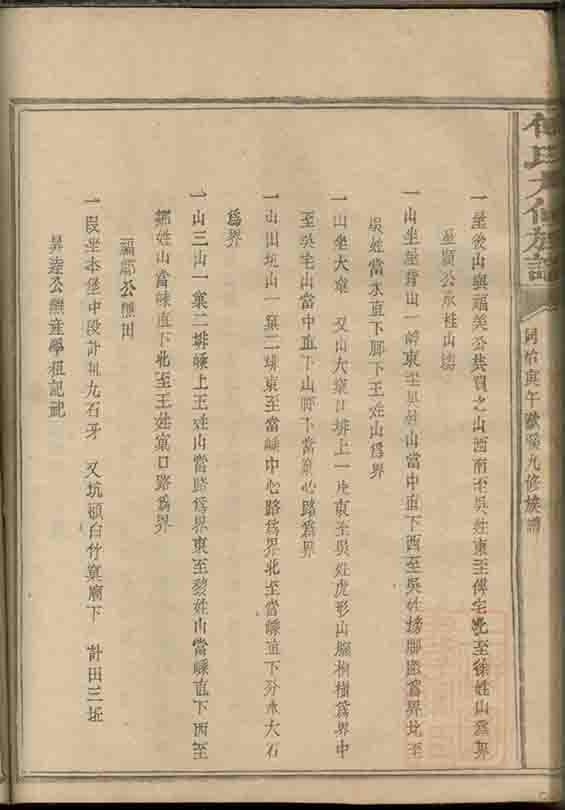 同治庚午歲 九修族譜
一屋後山與福美公共買之山西南至吳姓東至傅宅北至徐姓山為界
公永桂山塲
一山坐屋背山一嶂東至吳姓山當中直下西至吳姓塝脚為界北至
吳姓當水直下脚下王姓山為界
一山坐大 又山大窠 排上一片東至吳姓虎形山 桐樹為界中
至吳宅山當中直下山脚下當 心路為界
一山田坑山一窠二排東至當嵊中心路為界北至當嵊直下分水大石
為界
一山三山一窠二排嵊上王姓山當路為界東至黎姓山當嵊直下西至
姓山當嵊直下北至王姓窠口路為界
福 公 田
一段坐本堡中段計租九石牙 又坑頭白竹窠廟下 計田三坵
昇逵公 產學租記祀